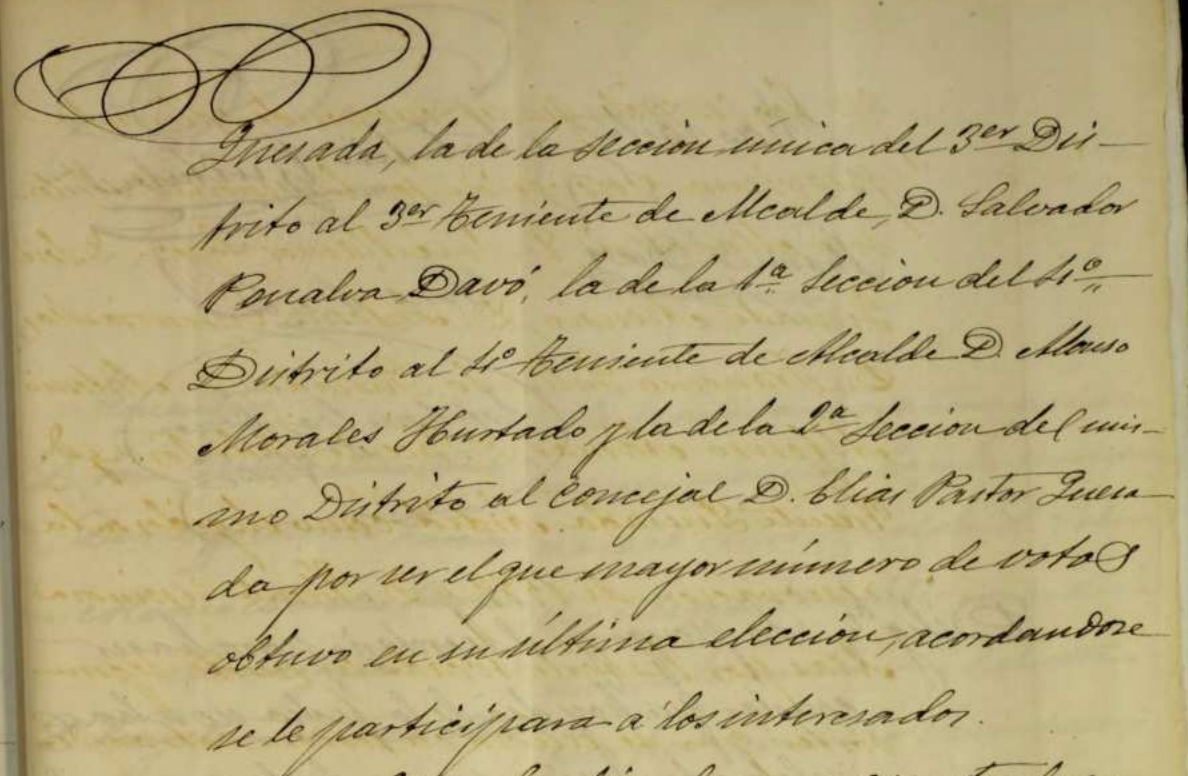 Quesada, la de la seccion unica del 3er Dis-
trito al 3er Teniente de Alcalde, D. Salvador
Penalva Davó, la de la 1ª Seccion del 4º
Distrito al 4º Teniente de Alcalde D. Alonso
Morales Hurtado y la de la 2ª Seccion del mis-
mo Distrito al Concejal D. Elias Pastor Quesa-
da por ser el que mayor número de votos
obtuvo en su última elección, acordandose
se le participara á los interesados.